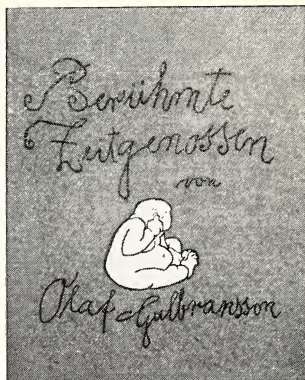 Berühmte
Zeitgenossen
von
Olaf Gulbransson